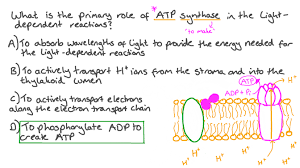 What is the primary role of *ATP Synthase in the Light-
"to make"
dependent reactions?
A) To absorb wavelengths of light to provide the energy needed for
the Light-dependent reactions
B) To actively transport H⁺ ions from the stroma and into the
thylakoid lumen
C) To actively transport electrons
along the electron transport chain
D) To phosphorylate ADP to
create ATP
H⁺
ATP
H⁺
ADP + Pᵢ
H⁺
H⁺
H⁺
H⁺